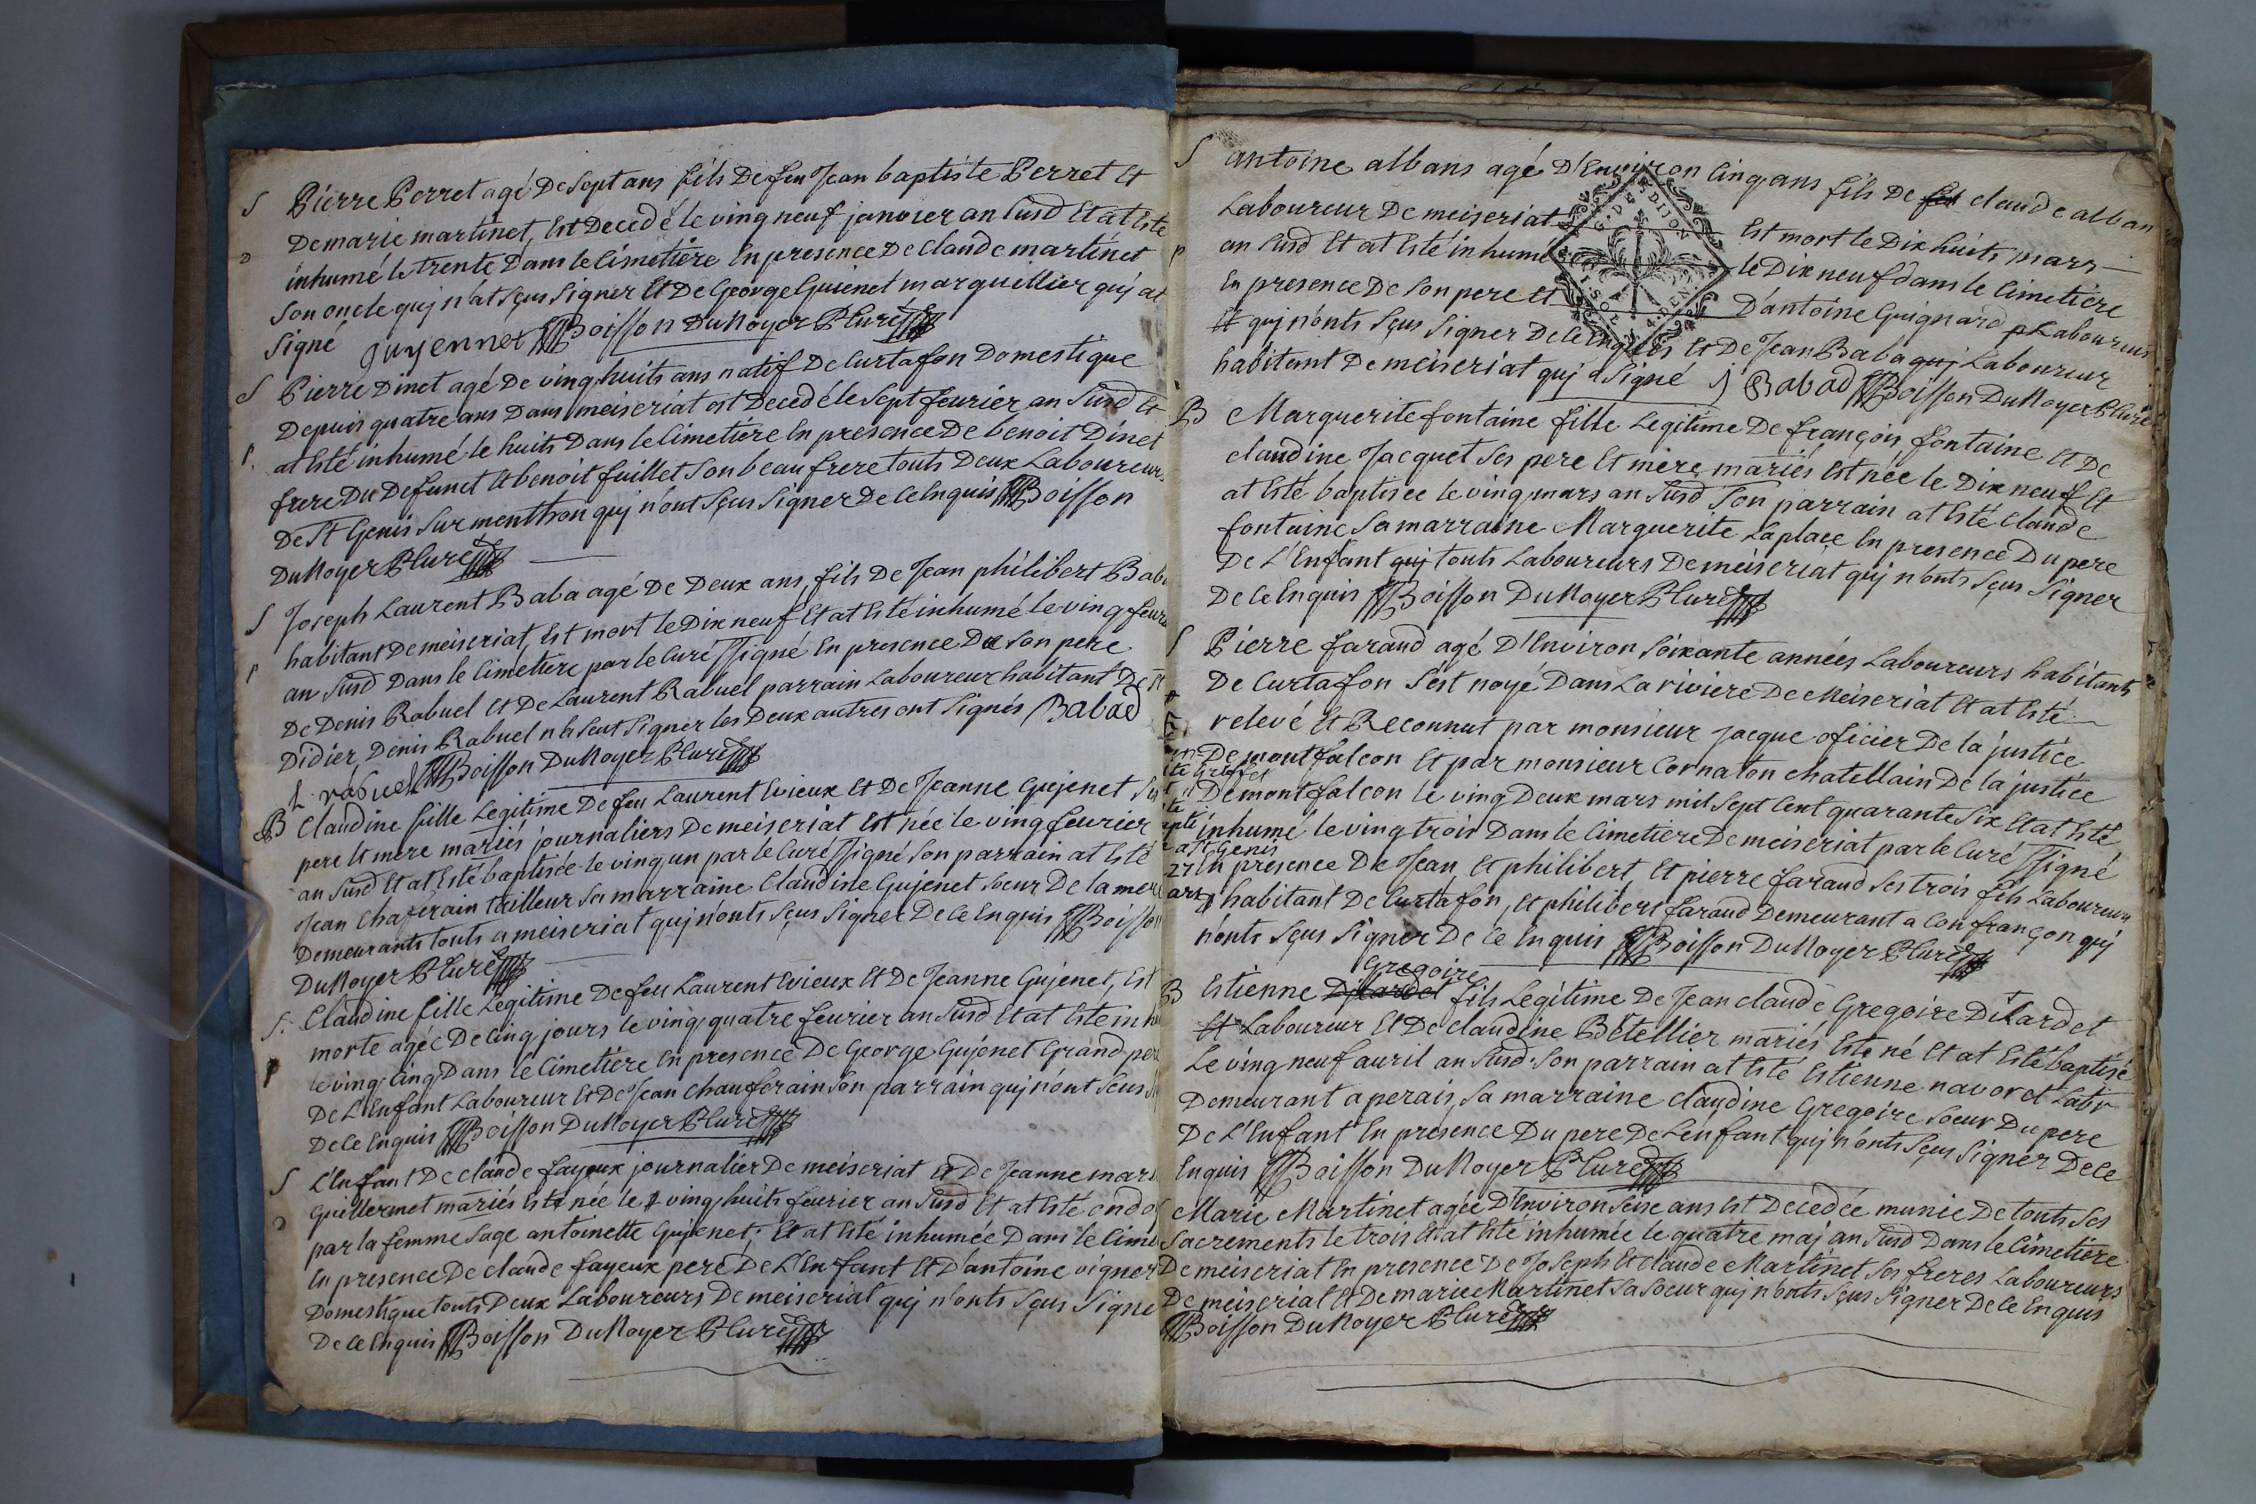 S Pierre Perret agé De Sept ans fils De feu Jean baptiste Perret Et
De marie martinet, Est Decedé le vingneuf janvier an Susd Et at Esté
inhumé le trente Dans le Cimetiere En presence De Claude martinet
Son oncle quj n'at Sçus Signer Et De George Guienet marguellier quj at
Signé Guyennet Boisson DuNoyer P Curé
S Pierre Dinet agé De vinghuits ans natif De Curtafon Domestique
Depuis quatre ans Dans meiseriat est Decedé le Sept feurier an Susd Et
at Esté inhumé le huits Dans le Cimetiere En presence De benoit Dinet
frere Du Defunct Et benoit fuillet Son beau frere touts Deux Laboureurs
De St Genis Sur menthon quj n'ont Sçus Signer De Ce Enquis Boisson
DuNoyer P Curé
S Joseph Laurent Baba agé De Deux ans, fils De Jean philibert Bab
habitant De meiseriat, Est mort le Dixneuf Et at Esté inhumé le ving feur
an Susd Dans le Cimetiere par le Curé Ssigné En presence De Son pere
De Denis Rabuel Et De Laurent Rabuel parrain Laboureur habitant De St
Didier, Denis Rabuel n'a Seut Signer les Deux autres ont Signés Babad
L. rabuel Boisson DuNoyer P Curé
B Claudine fille Legitime De feu Laurent Vieux Et De Jeanne Gujenet Ses
pere Et mere mariés journaliers De meiseriat Est née le ving feurier
an Susd Et at Esté baptisée le vingun par le Curé Ssigné Son parrain at Esté
Jean Chaferain tailleur Sa marraine Claudine Gujenet Soeur De la mere
Demeurants touts a meiseriat quj n'onts Sçus Signer De Ce Enquis Boisson
DuNoyer P Curé
S. Claudine fille Legitime De feu Laurent Vieux Et De Jeanne Gujenet, Est
morte agée De Cinq jours le vingquatre feurier an Susd Et at Esté inh
le vingCinq Dans le Cimetiere En presence De George Gujenet Grand pere
De L'Enfant Laboureur Et De Jean Chauferain Son parrain quj n'ont Sçus
De Ce Enquis Boisson DuNoyer P Curé
S L'Enfant De claude fayeux journalier De meiseriat Et De Jeanne mar
Guillermet mariés Est née le vinghuits feurier an Susd Et at Esté ondo
par la femme Sage antoinette Gujenet; Et at Esté inhumée Dans le Cime
En presence De claude fayeux pere De L'Enfant Et D'antoine vigner
Domestique touts Deux Laboureurs De meiseriat quj n'onts Sçus Signe
De Ce Enquis Boisson DuNoyer P Curé
S antoine albans agé D'Environ Cinq ans fils De claude alban
Laboureur De meiseriat Est mort le Dixhuits mars
an Susd Et at Esté inhumé le Dixneuf dans le Cimetiere
En presence De Son pere Et D'antoine Guignard Laboureur
Et quj n'onts Sçus Signer De Ce Enquis Et De Jean Baba quj Laboureur
habitant De meiseriat quj a Signé J Babad Boisson DuNoyer P Curé
B Marguerite fontaine fille Legitime De françois fontaine Et De
claudine Jacquet Ses pere Et mere mariés Est née le Dixneuf Et
at Esté baptisée le ving mars an Susd Son parrain at Esté Claude
fontaine Sa marraine Marguerite Laplace En presence Du pere
De L'Enfant quj touts Laboureurs De meiseriat quj n'onts Sçus Signer
De Ce Enquis Boisson DuNoyer P Curé
S Pierre faraud agé D'Environ Soixante années Laboureurs habitants
De Curtafon S'est noyé Dans La riviere De Meiseriat Et at Esté
relevé Et Reconnut par monsieur jacque oficier De la justice
De montfalcon Et par monsieur Cornaton chatellain De la justice
De montfalcon le vingDeux mars mil Sept Cent quarante Six Et at Esté
inhumé le vingtrois Dans le Cimetiere De meiseriat par le Curé Ssigné
En presence De Jean, Et philibert, Et pierre faraud Ses trois fils Laboureurs
habitant De Curtafon, Et philibert faraud Demeurant a Confrançon quj
n'onts Sçus Signer De Ce Enquis Boisson DuNoyer P Curé
Gregoire
B Estienne fils Legitime De Jean claude Gregoire Ditardet
Et Laboureur Et De Claudine Betellier mariés Est né Et at Esté baptisé
Le vingneuf auril an Susd Son parrain at Esté Estienne navoret Labr
Demeurant a perais, Sa marraine claudine Gregoire Soeur Du pere
De L'Enfant En presence Du pere De L'enfant quj n'onts Sçus Signer De Ce
Enquis Boisson DuNoyer P Curé
Marie Martinet agée D'Environ Seise ans Est Decedée munie De touts Ses
Sacrements le trois Et at Esté inhumée le quatre maj an Susd Dans le Cimetiere
De meiseriat En presence De Joseph Et claude Martinet Ses freres Laboureurs
De meiseriat Et De marie Martinet Sa Soeur quj n'onts Sçus Signer De Ce Enquis
Boisson DuNoyer P Curé